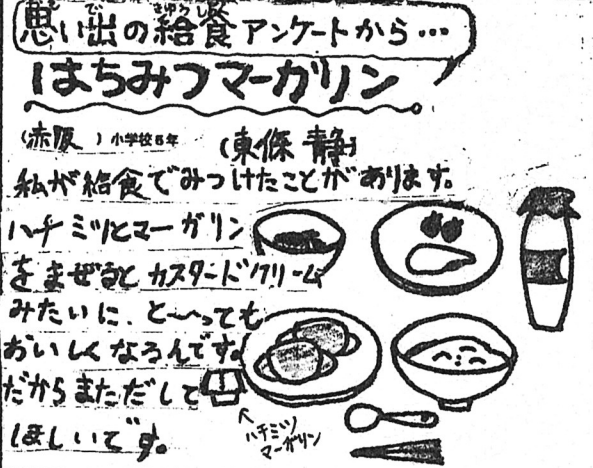 思い出の給食アンケートから…
はちみつマーガリン
(赤阪)小学校5年 (東條 静)
私が給食でみつけたことがあります。
ハチミツとマーガリン
をまぜるとカスタードクリーム
みたいに、と〜っても
おいしくなるんです。
だからまただして
ほしいです。
ハチミツ
マーガリン